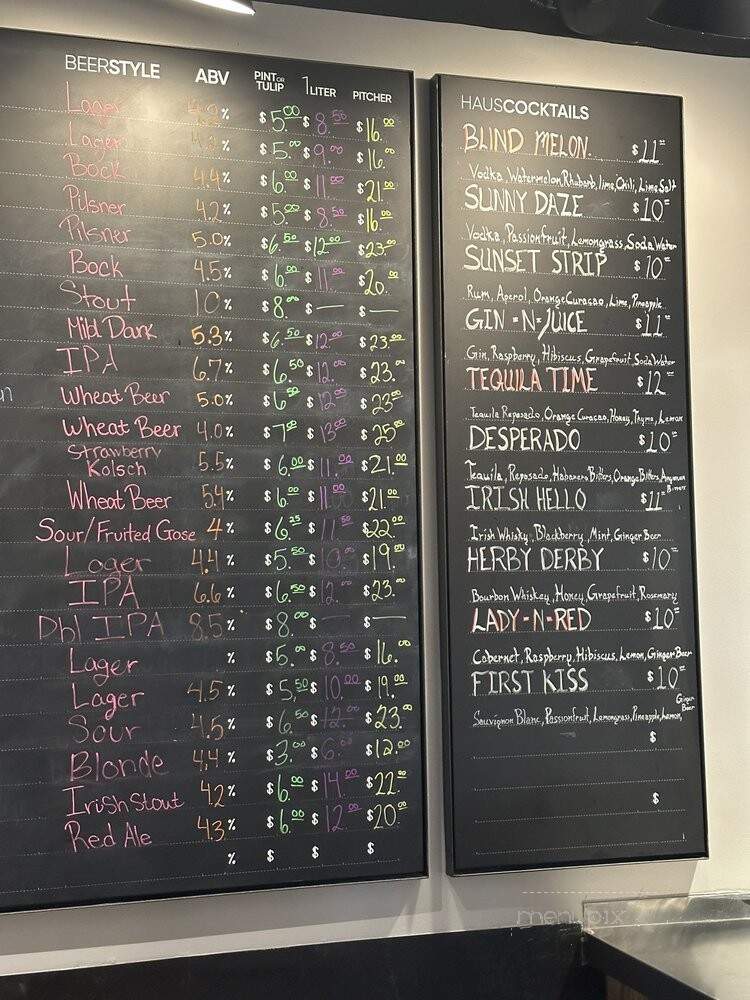 BEERSTYLE ABV PINT OR TULIP 1 LITER PITCHER
Lager 4.9% $5.00 $8.50 $16.00
Lager % $5.00 $9.00 $16.00
Bock 4.4% $6.00 $11.00 $21.00
Pilsner 4.2% $5.00 $8.50 $16.00
Pilsner 5.0% $6.50 $12.00 $23.00
Bock 4.5% $6.00 $11.00 $20.00
Stout 10% $8.00 $— $—
Mild Dark 5.3% $6.50 $12.00 $23.00
IPA 6.7% $6.50 $12.00 $23.00
Wheat Beer 5.0% $6.50 $12.00 $23.00
Wheat Beer 4.0% $7.00 $13.00 $25.00
Strawberry
Kolsch 5.5% $6.00 $11.00 $21.00
Wheat Beer 5.4% $6.00 $11.00 $21.00
Sour/Fruited Gose 4% $6.25 $11.50 $22.00
Lager 4.4% $5.50 $10.00 $19.00
IPA 6.6% $6.50 $12.00 $23.00
Dbl IPA 8.5% $8.00 $— $—
Lager % $5.00 $8.50 $16.00
Lager 4.5% $5.50 $10.00 $19.00
Sour 4.5% $6.50 $12.00 $23.00
Blonde 4.4% $3.00 $6.00 $12.00
Irish Stout 4.2% $6.00 $14.00 $22.00
Red Ale 4.3% $6.00 $12.00 $20.00
% $ $ $
HAUSCOCKTAILS
BLIND MELON. $11=
Vodka, Watermelon, Rhubarb, lime, Chili, Lime Salt
SUNNY DAZE $10=
Vodka, Passionfruit, Lemongrass, Soda Water
SUNSET STRIP $10=
Rum, Aperol, Orange Curacao, Lime, Pineapple
GIN-N-JUICE $11=
Gin, Raspberry, Hibiscus, Grapefruit, Soda Water
TEQUILA TIME $12=
Tequila Reposado, Orange Curacao, Honey, Thyme, Lemon
DESPERADO $10=
Tequila, Reposado, Habanero Bitters, Orange Bitters,
IRISH HELLO $11=
Irish Whisky, Blackberry, Mint, Ginger Beer
HERBY DERBY $10=
Bourbon Whiskey, Honey, Grapefruit, Rosemary
LADY-N-RED $10=
Cabernet, Raspberry, Hibiscus, Lemon, Ginger Beer
FIRST KISS $10=
Sauvignon Blanc, Passionfruit, Lemongrass, Pineapple, Lemon, Ginger Beer
$
$
menupix